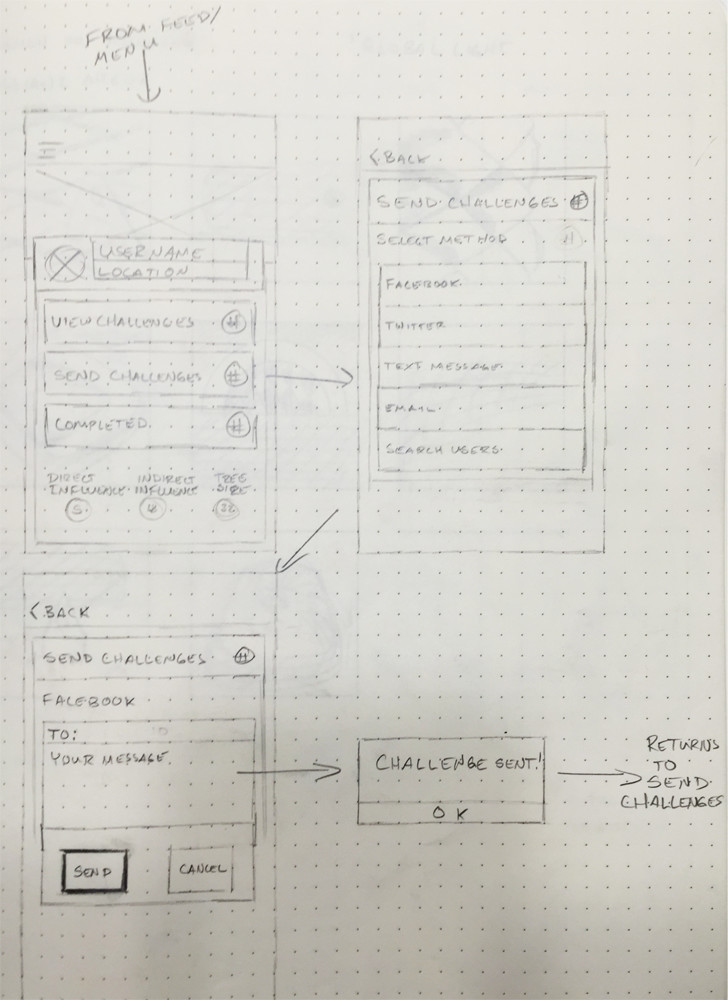 FROM FEED/
MENU
USERNAME
LOCATION
VIEW CHALLENGES #
SEND CHALLENGES #
COMPLETED. #
DIRECT INFLUENCE
INDIRECT INFLUENCE
TREE SIZE
5
32
< BACK
SEND CHALLENGES #
SELECT METHOD
FACEBOOK
TWITTER
TEXT MESSAGE
EMAIL
SEARCH USERS
< BACK
SEND CHALLENGES #
FACEBOOK
TO:
YOUR MESSAGE.
SEND
CANCEL
CHALLENGE SENT!
OK
RETURNS
TO
SEND
CHALLENGES